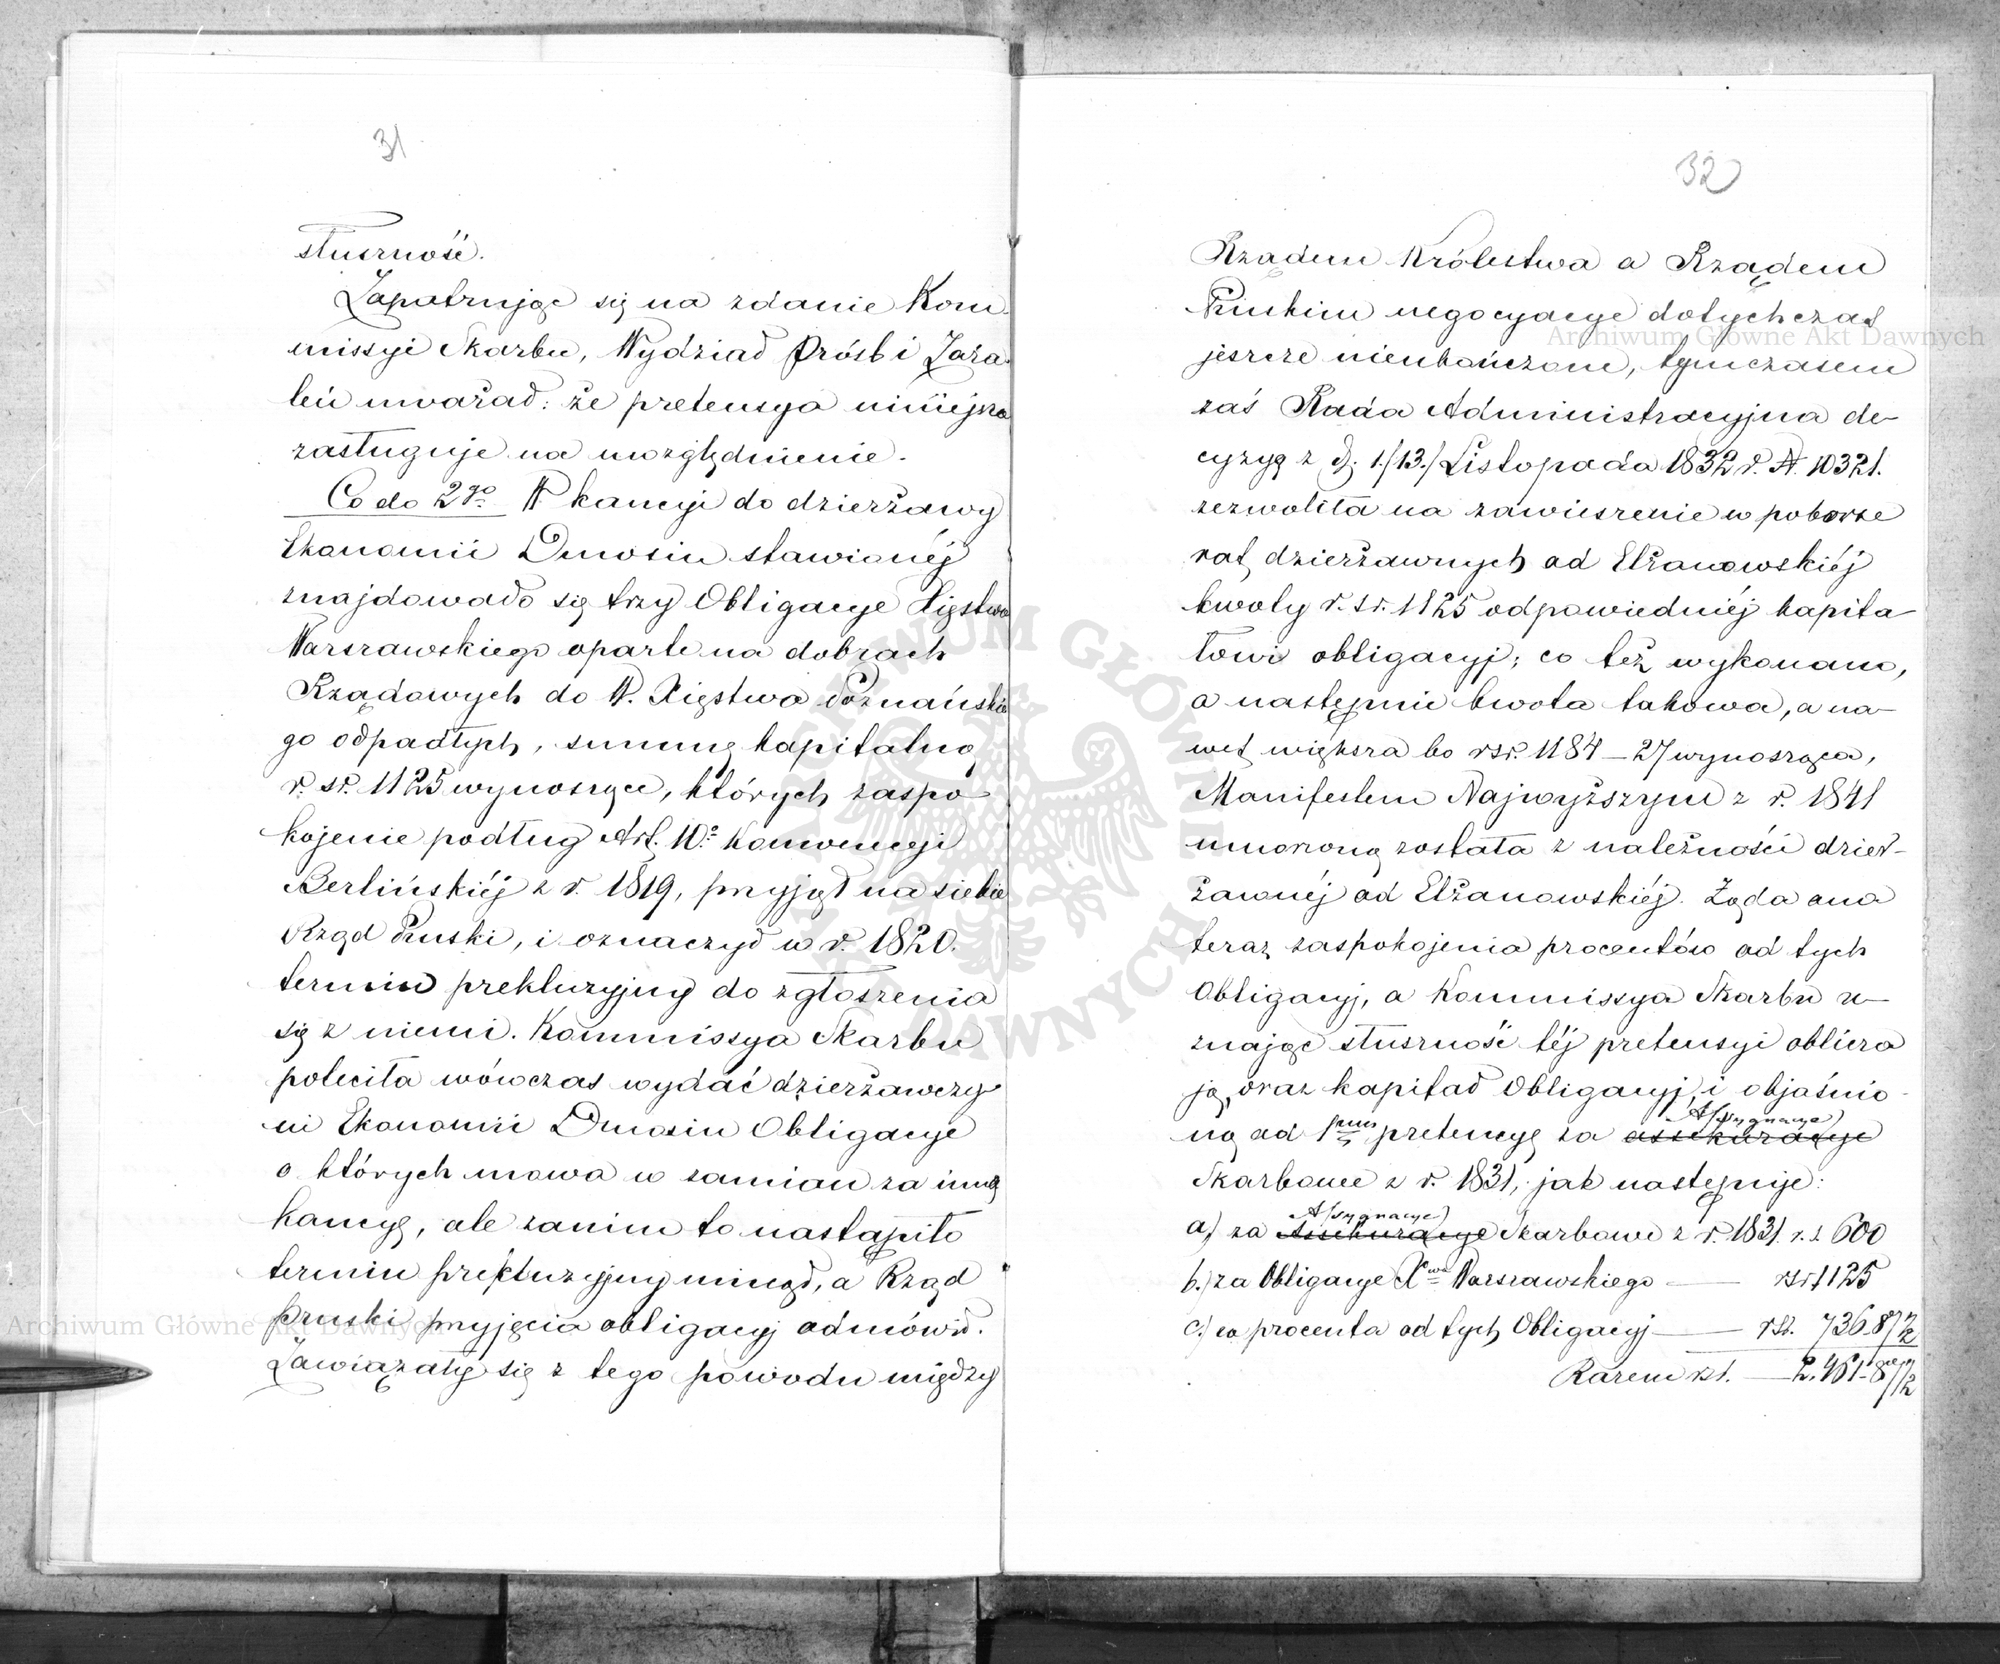 31
słuszność.
Zapatrując się na zdanie Kom-
missyi Skarbu, Wydział Próśb i Zaża-
leń uważał: że pretensya niniejsza
zasługuje na uwzględnienie.
Co do 2go W kaucyi do dzierżawy
Ekonomii Dmosin stawionéj
znajdowało się trzy Obligacye Xięstwa
Warszawskiego oparte na dobrach
Rządowych do W. Xięstwa Poznańskie
go odpadłych, summę kapitalną
r. sr. 1125 wynoszące, których zaspo
kojenie podług Art. 10o Konwencyi
Berlińskiéj z r. 1819, przyjął na siebie
Rząd Pruski, i oznaczył w r. 1820.
termin prekluzyjny do zgłoszenia
się z niemi. Kommissya Skarbu
poleciła wówczas wydać dzierżawczy
ni Ekonomii Dmosin Obligacye
o których mowa w zamian za inną
kaucyę, ale zanim to nastąpiło
termin prekluzyjny minął, a Rząd
pruski przyjęcia obligacyj odmówił.
Zawiązały się z tego powodu między
32
Rządem Królestwa a Rządem
Pruskim negocyacye dotychczas
jeszcze nieukończone, tymczasem
zaś Rada Administracyjna de-
cyzyą z d. 1./13./ Listopada 1832 r. N. 10321.
zezwoliła na zawieszenie w poborze
rat dzierżawnych od Elżanowskiéj
kwoty r. sr. 1125 odpowiedniéj kapita
łowi obligacyj; co też wykonano,
a następnie kwota takowa, a na-
wet większa bo rsr. 1184 – 27 wynosząca,
Manifestem Najwyższym z r. 1841
umorzoną została z należności dzier-
żawnéj od Elżanowskiéj. Żąda ona
teraz zaspokojenia procentów od tych
Obligacyj, a Kommissya Skarbu u-
znając słuszność téj pretensyi oblicza
ją, oraz kapitał Obligacyj, i objaśnio-
Assygnacye
ną ad 1mum pretensyę za assekuracye
Skarbowe z r. 1831, jak następuje:
Assygnacye
a) za Assekuracye Skarbowe z r. 1831. r. s. 600
b.) za Obligacye Xwa Warszawskiego — rsr 1125
c.) co procenta od tych Obligacyj — rsr. 736-87½
Razem rsr. — 2.461-87½
Archiwum Główne Akt Dawnych
Archiwum Główne Akt Dawnych
ARCHIWUM GŁÓWNE AKT DAWNYCH